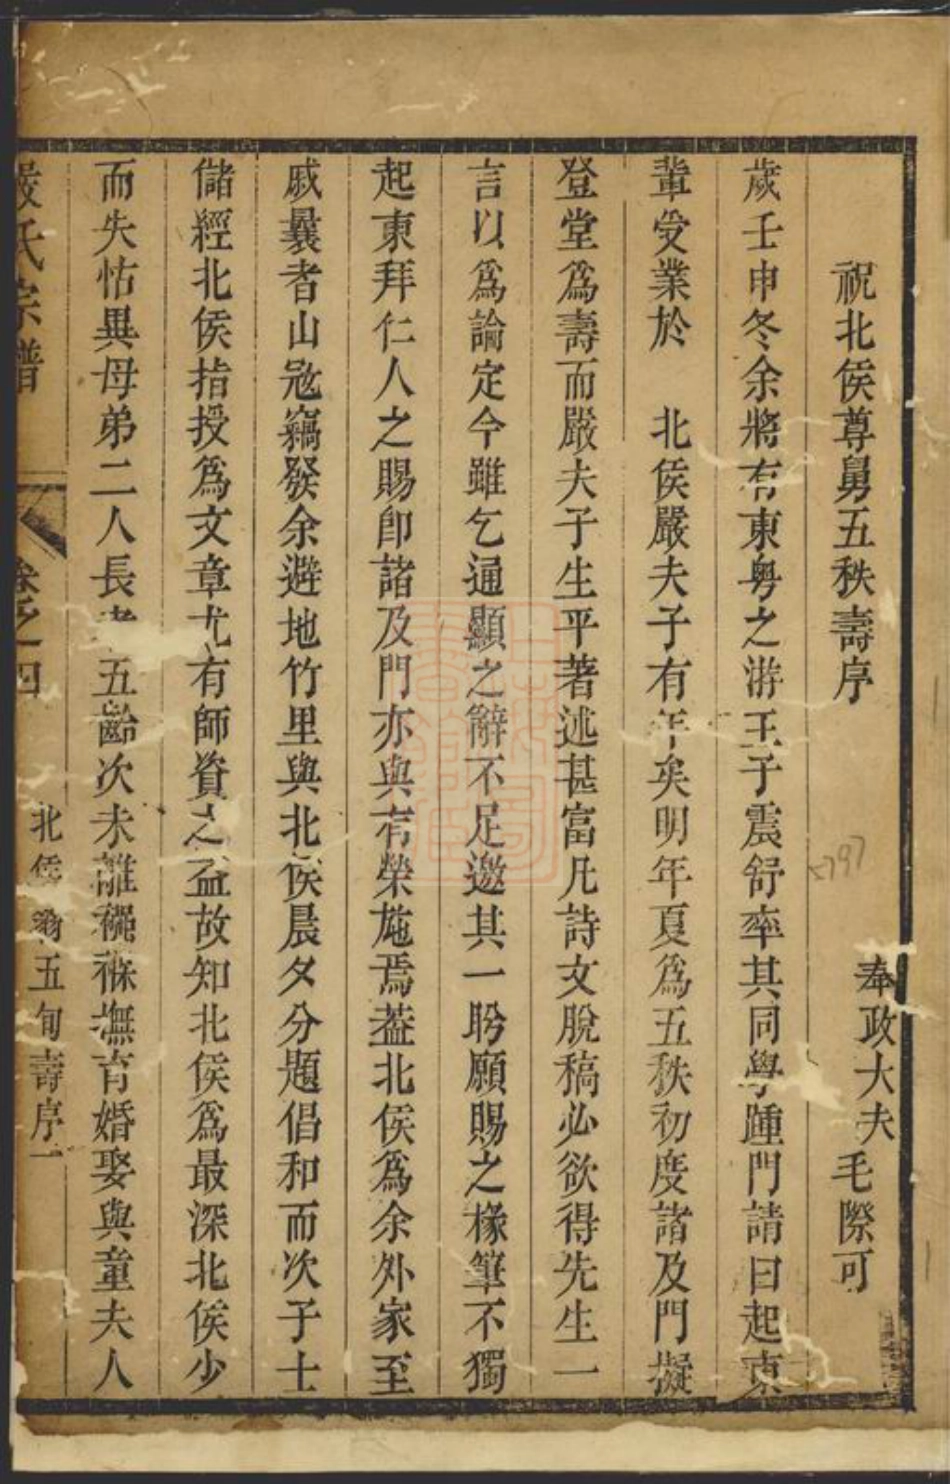 祝北侯尊舅五秩壽序
奉政大夫毛際可
歲壬申冬余將有東粵之游王子震舒率其同學踵門請曰起東
輩受業於 北侯嚴夫子有年矣明年夏爲五秩初度諸及門擬
登堂爲壽而嚴夫子生平著述甚富凡詩文脫稿必欲得先生一
言以爲論定今雖乞通顯之辭不足邀其一盼願賜之椽筆不獨
起東拜仁人之賜卽諸及門亦與有榮施焉葢北侯爲余外家至
戚曩者山冦竊發余避地竹里與北侯晨夕分題倡和而次子士
儲經北侯指授爲文章尤有師資之益故知北侯爲最深北侯少
而失怙異母弟二人長者五齡次未離襁褓撫育婚娶與童夫人
嚴氏宗譜 卷之四 北侯翁五旬壽序一